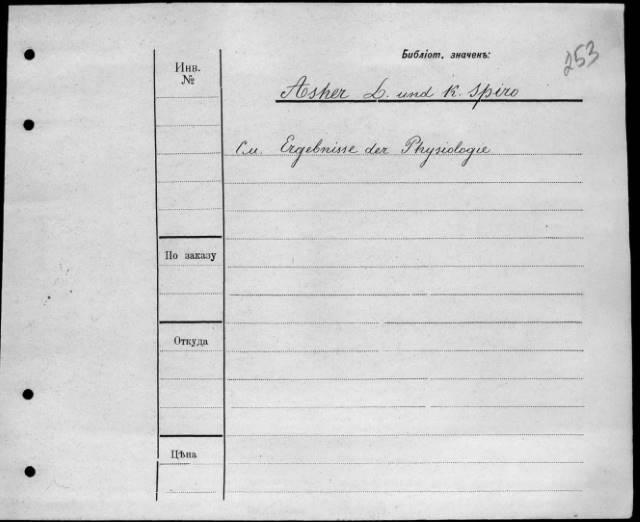 Библіот. значекъ:
253
Инв.
№
Asher L. und K. Spiro
См. Ergebnisse der Physiologie
По заказу
Откуда
Цѣна